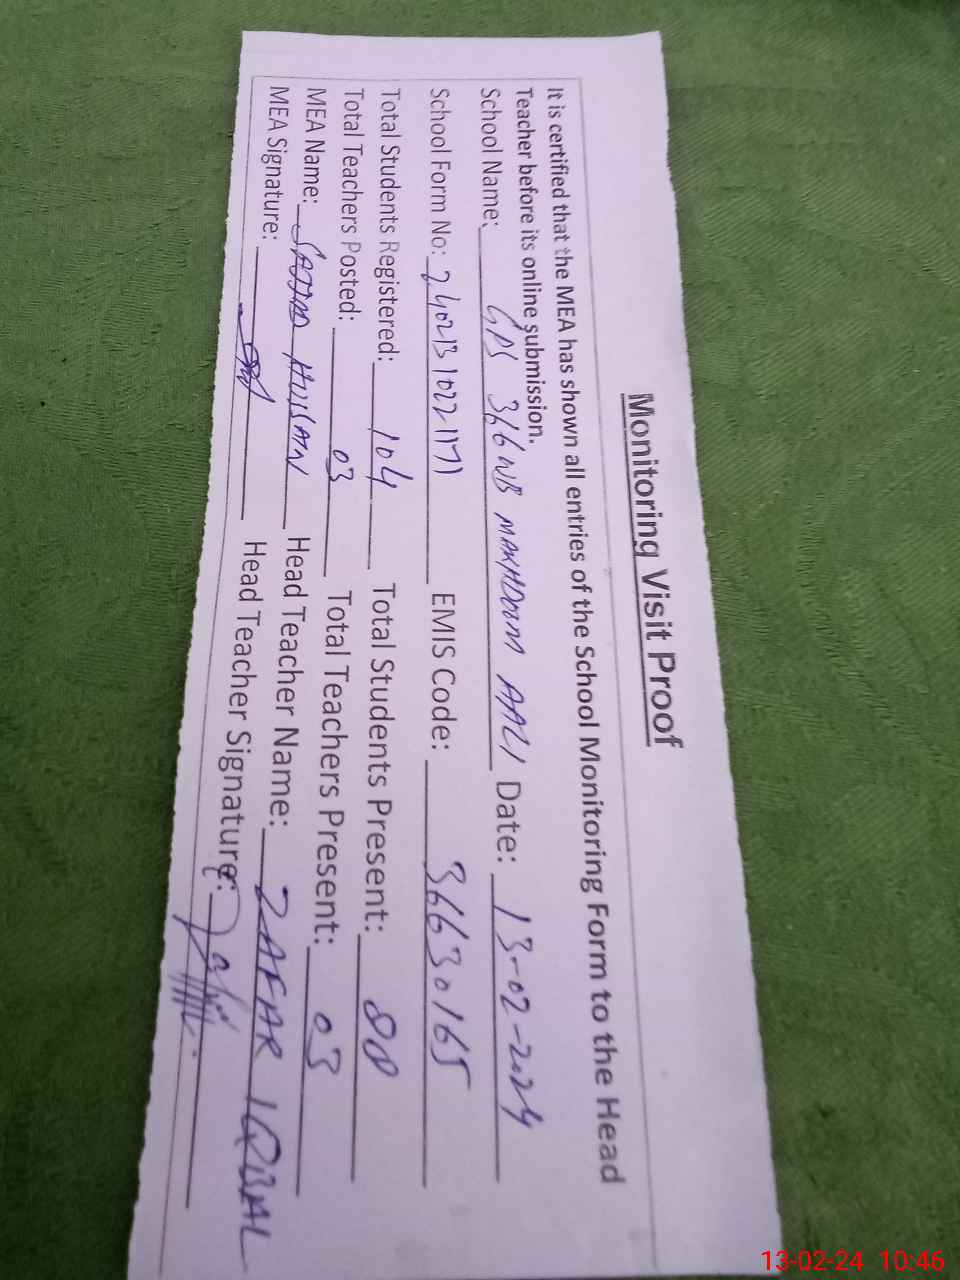 Monitoring Visit Proof
It is certified that the MEA has shown all entries of the School Monitoring Form to the Head
Teacher before its online submission.
School Name: GPS 366 WB MAKHDOOM AALI Date: 13-02-2024
School Form No: 24021310221171 EMIS Code: 36630165
Total Students Registered: 104 Total Students Present: 80
Total Teachers Posted: 03 Total Teachers Present: 03
MEA Name: SAJJAD HUSSAIN Head Teacher Name: ZAFAR IQBAL
MEA Signature: Head Teacher Signature:
13-02-24 10:46